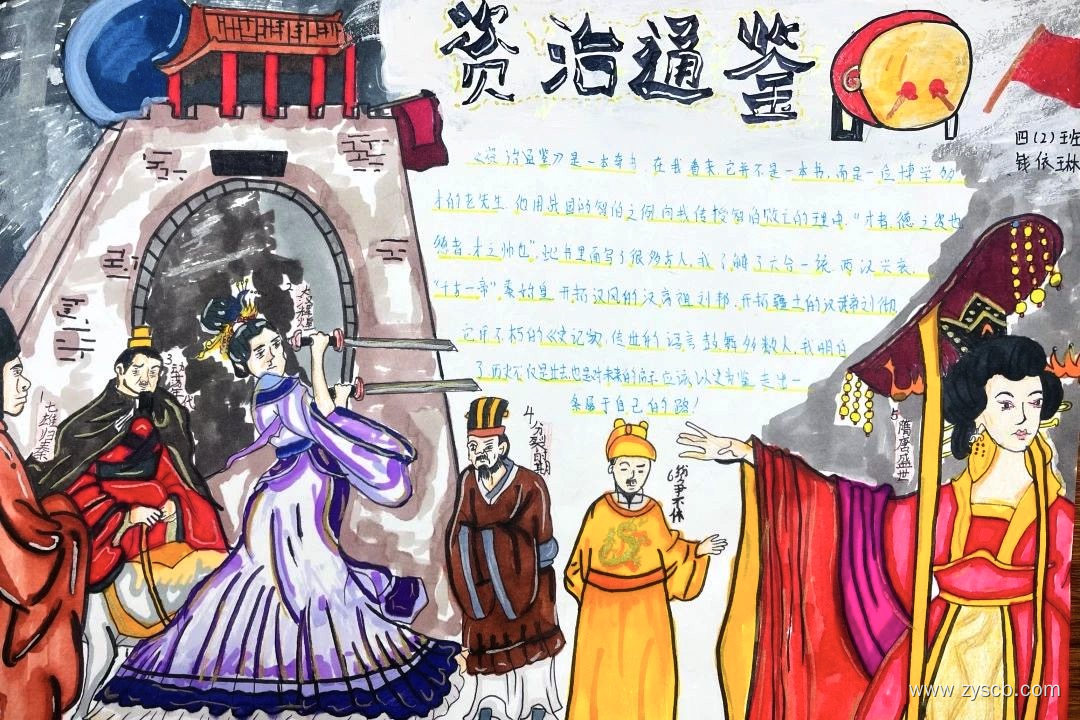 资治通鉴
四(2)班
钱依琳
《资治通鉴》是一本奇书,在我看来,它并不是一本书,而是一位博学多
才的老先生,他用战国的智伯之例向我传授智伯败亡的理由,"才者,德之资也
德者,才之帅也",此书里面写了很多古人,我了解了六合一统,两汉兴衰,
"千古一帝"秦始皇,开拓汉风的汉高祖刘邦,开拓疆土的汉武帝刘彻
不朽的《史记》,传世的 鼓舞 数人,我明白
了历史不仅是过去,也是对未来的启示,应该以史为鉴,走出一
条属于自己的路!
1七雄归秦
2大汉辉煌
3三国
4分裂时期
5隋唐盛世
6纷争不休
www.zyscb.com